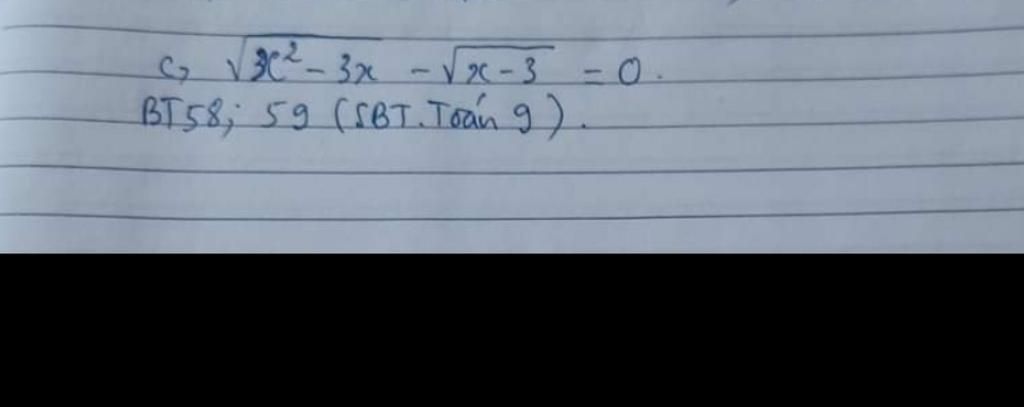 c, √(x² - 3x) - √(x - 3) = 0.
BT58; 59 (SBT. Toán 9).